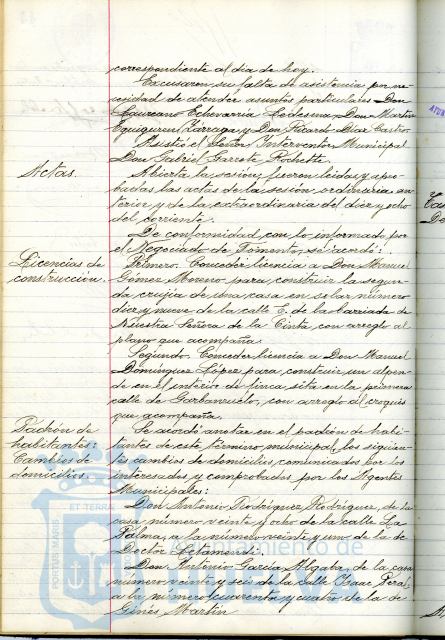 correspondiente al día de hoy.
Excusaron su falta de asistencia por ne-
cesidad de atender asuntos particulares Don
Laureano Echevarría Ledesma, Don Martín
Eguiguren Zarraga y Don Ricardo Díaz Castro.
Asistió el Señor Interventor Municipal
Don Gabriel Garrote Rochette.
Actas.
Abierta la sesión, fueron leidas y apro-
badas las actas de la sesión ordinaria an-
terior y de la extraordinaria del diez y ocho
del corriente.
De conformidad con lo informado por
el Negociado de Fomento, se acordó:
Licencias de
construcción.
Primero. Conceder licencia a Don Manuel
Gómez Moreno para construir la segun-
da crujía de una casa en solar número
diez y nueve de la calle E. de la barriada de
Nuestra Señora de la Cinta con arreglo al
plano que acompaña.
Segundo. Conceder licencia a Don Manuel
Domínguez López para construir un alpen-
de en el interior de finca sita en la primera
calle de Garbanzuelo, con arreglo al croquis
que acompaña.
Padrón de
habitantes:
Cambios de
domicilios.
Se acordó anotar en el padrón de habi-
tantes de este término municipal los siguien-
tes cambios de domicilio comunicados por los
interesados y comprobados por los Agentes
Municipales:
Don Antonio Rodríguez Rodríguez, de la
casa número veinte y ocho de la calle La
Palma, a la número veinte y uno de la de
Doctor Letamendi.
Don Antonio García de la casa
número veinte y seis de la calle Isaac Peral
a la número cuarenta y cuatro de la de
Ginés Martín
PORTUS MARIS ET TERRAE
Ayuntamiento de